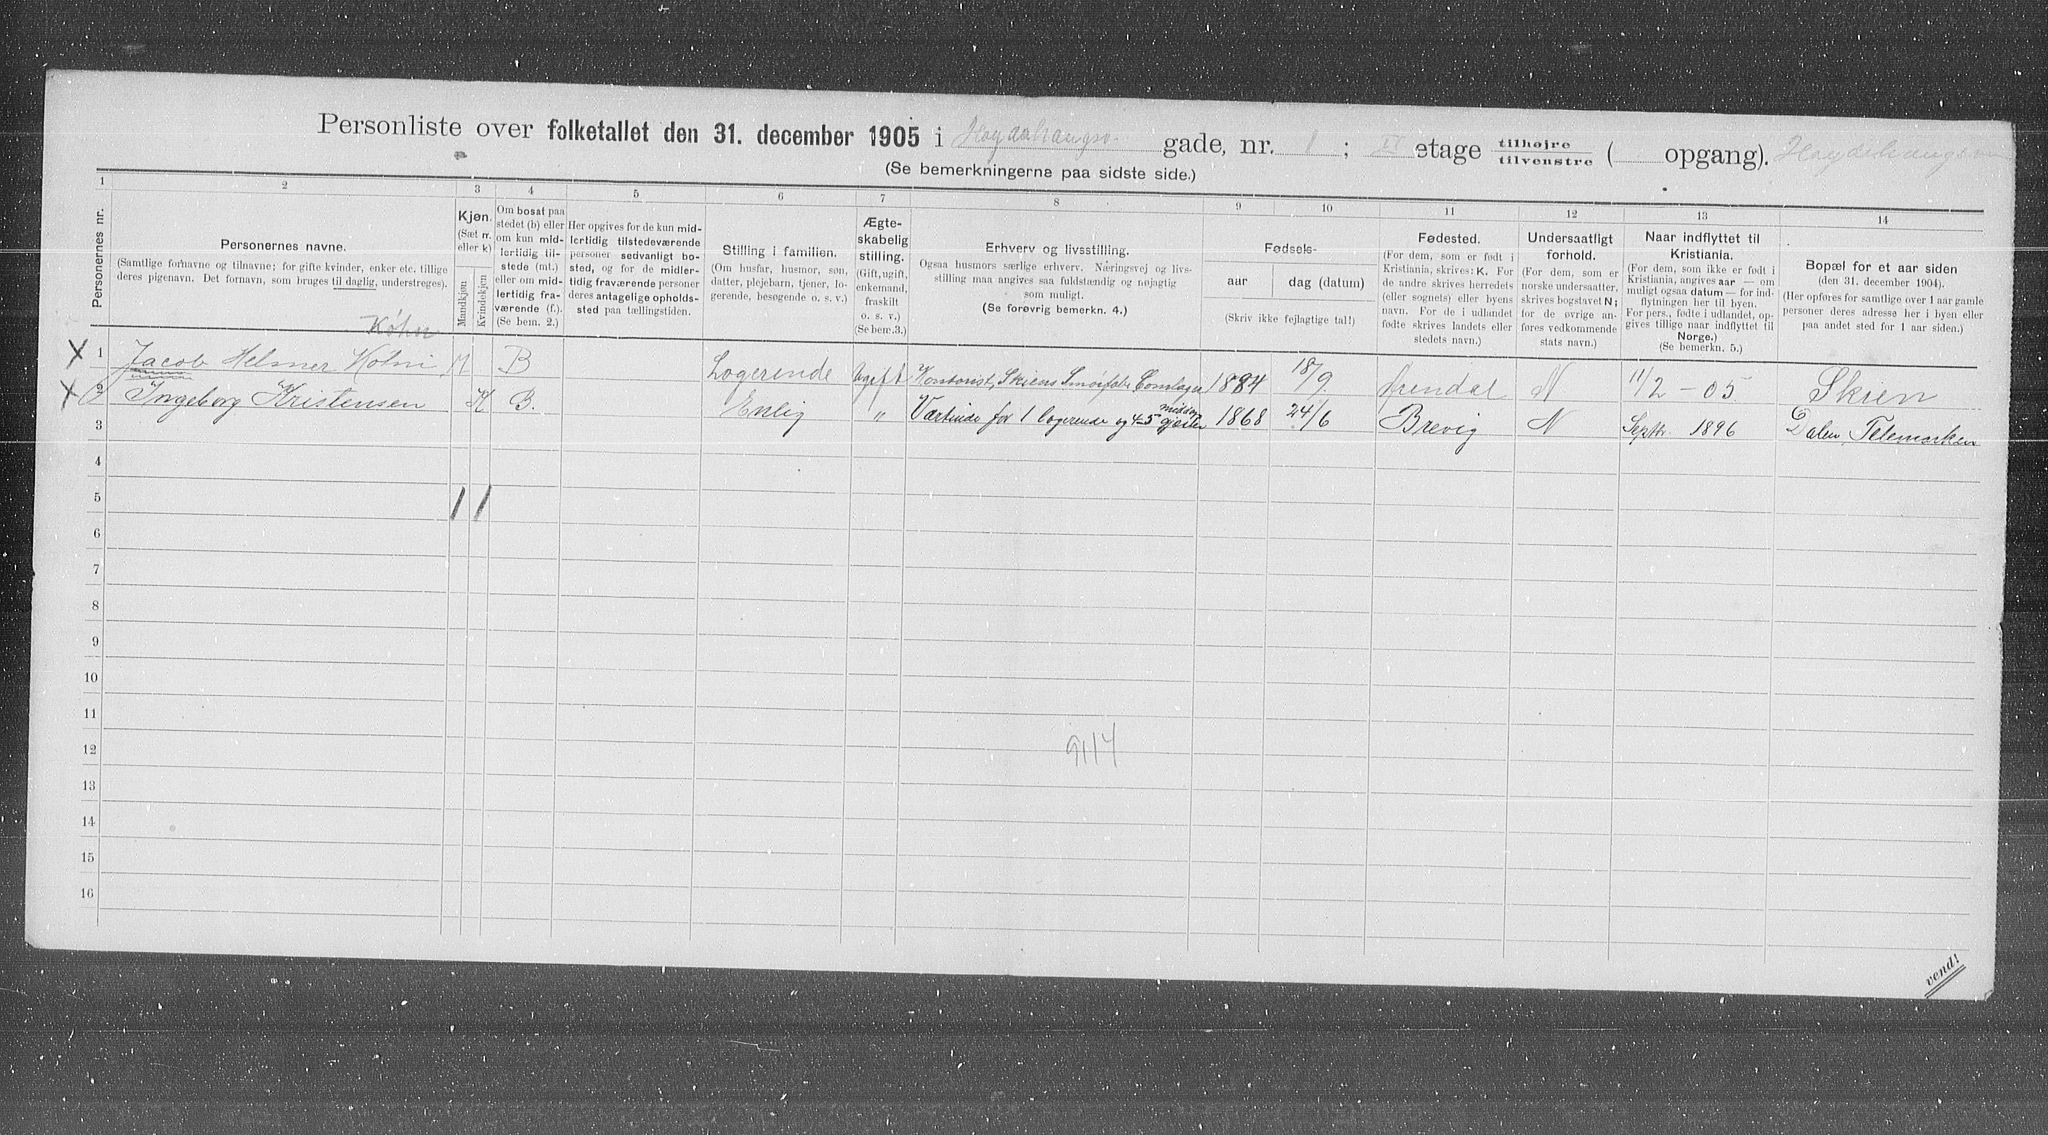 Personliste over folketallet den 31. december 1905 i gade, nr. 1; IV etage tilhøjre / tilvenstre ( opgang).
(Se bemerkningerne paa sidste side.)
1 2 3 4 5 6 7 8 9 10 11 12 13 14
Personernes nr.
Personernes navne.
(Samtlige fornavne og tilnavne; for gifte kvinder, enker etc. tillige
deres pigenavn. Det fornavn, som bruges til daglig, understreges).
Kjøn.
(Sæt m.
eller k)
Mandkjøn
Kvindekjøn
Om bosat paa
stedet (b) eller
om kun mid-
lertidig til-
stede (mt.)
eller om mid-
lertidig fra-
værende (f.).
(Se bem. 2.)
Her opgives for de kun mid-
lertidig tilstedeværende
personer sedvanligt bo-
sted, og for de midler-
tidig fraværende personer
deres antagelige opholds-
sted paa tællingstiden.
Stilling i familien.
(Om husfar, husmor, søn,
datter, plejebarn, tjener, lo-
gerende, besøgende o. s. v.)
Ægte-
skabelig
stilling.
(Gift, ugift,
enkemand,
fraskilt
o. s. v.)
(Se bem.3.)
Erhverv og livsstilling.
Ogsaa husmors særlige erhverv. Næringsvej og livs-
stilling maa angives saa fuldstændig og nøjagtig
som muligt.
(Se forøvrig bemerkn. 4.)
Fødsels-
aar
dag (datum)
(Skriv ikke fejlagtige tal!)
Fødested.
(For dem, som er født i
Kristiania, skrives: K. For
de andre skrives herredets
(eller sognets) eller byens
navn. For de i udlandet
fødte skrives landets eller
stedets navn.)
Undersaatligt
forhold.
(For dem, som er
norske undersaatter,
skrives bogstavet N;
for de øvrige an-
føres vedkommende
stats navn.)
Naar indflyttet til
Kristiania.
(For dem, som ikke er født i
Kristiania, angives aar — om
muligt ogsaa datum — for ind-
flytningen her til byen.
For pers., fødte i udlandet, op-
gives tillige naar indflyttet til
Norge.)
(Se bemerkn. 5.)
Bopæl for et aar siden
(den 31. december 1904).
(Her opføres for samtlige over 1 aar gamle
personer deres adresse her i byen eller
paa andet sted for 1 aar siden.)
Køhn
X 1 Jacob M B Logerende Ugift Kontorist, Skiens 1884 18/9 Arendal N 11/2 - 05 Skien
X 2 Ingeborg Kristensen K B. Enlig " Værtinde for 1 logerende og 4-5 middag gjester 1868 24/6 Brevig N Septbr. 1896 Dalen, Telemarken
3
4
5 1 1
6
7
8
9
10
11
12
9114
13
14
15
16
vend!